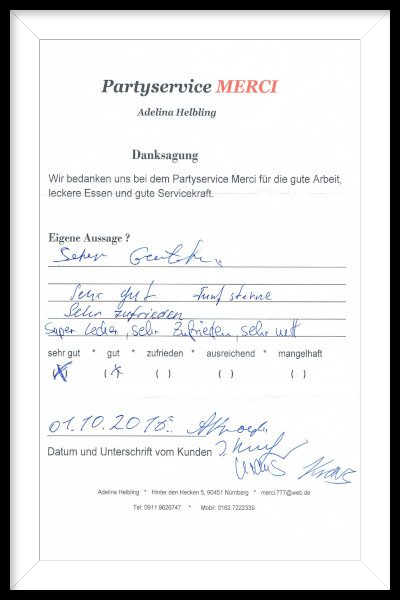 Partyservice MERCI
Adelina Helbling
Danksagung
Wir bedanken uns bei dem Partyservice Merci für die gute Arbeit,
leckere Essen und gute Servicekraft.
Eigene Aussage ?
Sehr gut Fünf sterne
Sehr zufrieden
Super lecker, sehr zufrieden, sehr nett
sehr gut * gut * zufrieden * ausreichend * mangelhaft
(X) (X) ( ) ( ) ( )
Datum und Unterschrift vom Kunden
Adelina Helbling * Hinter den Hecken 5, 90451 Nürnberg * merci.777@web.de
Tel: 0911 9626747 * Mobil: 0162 7222339